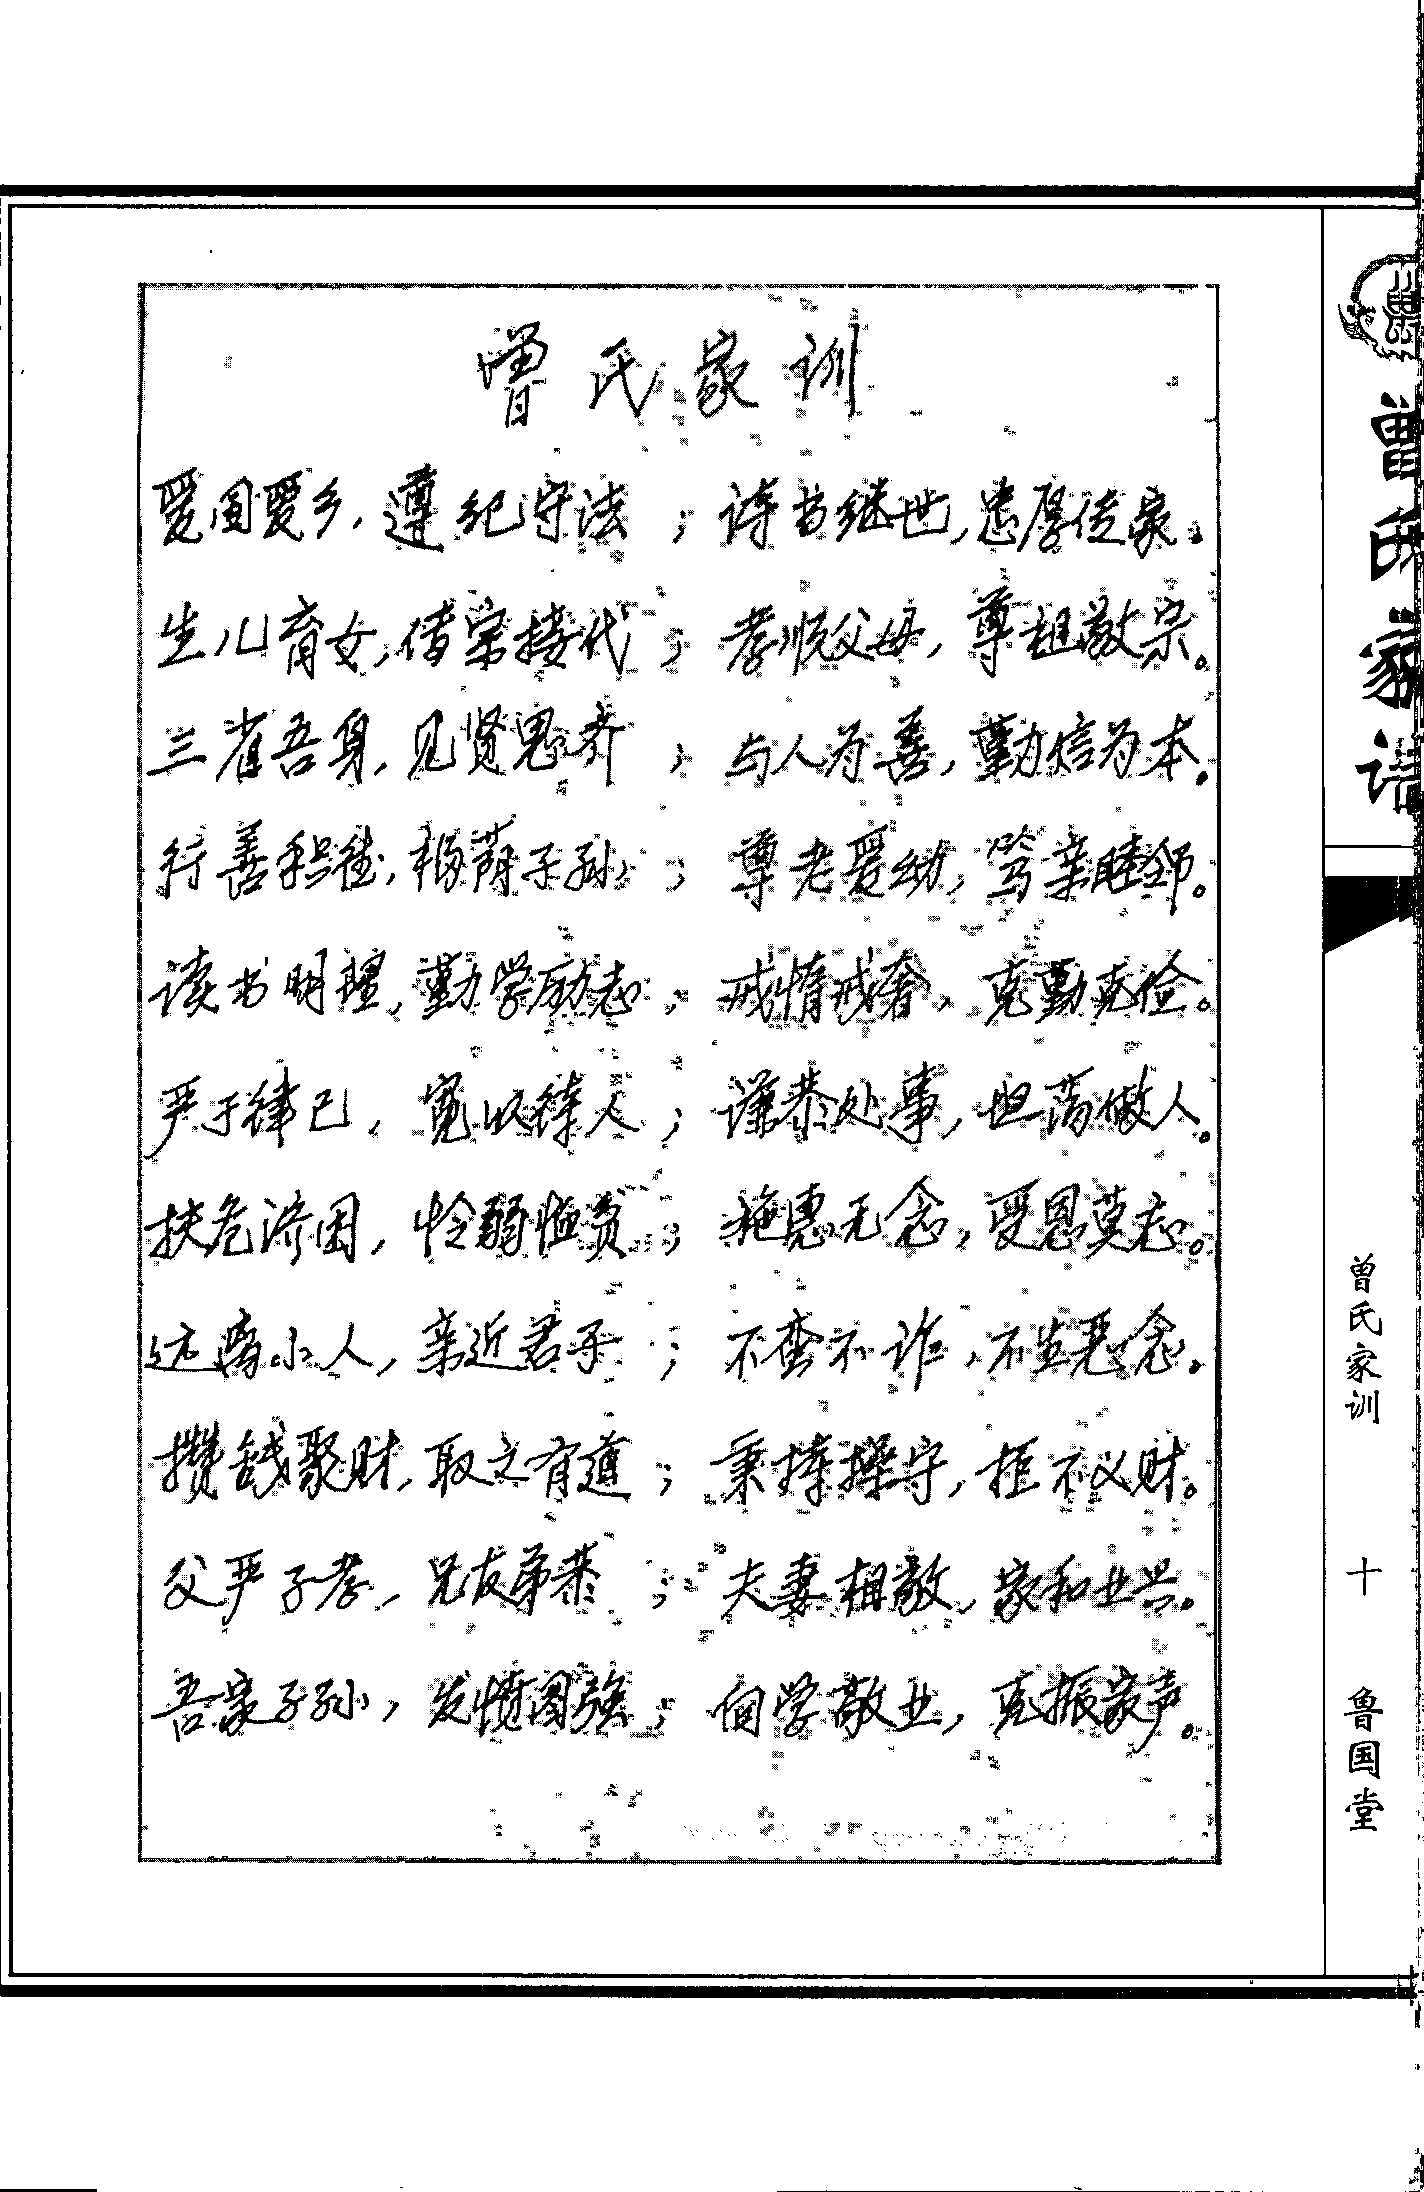 曾氏家训
爱国爱乡，遵纪守法；诗书继世，忠厚传家。
生儿育女，传宗接代；孝顺父母，尊祖敬宗。
三省吾身，见贤思齐；与人为善，勤信为本。
行善积德，福荫子孙；尊老爱幼，笃亲睦邻。
读书明理，勤学励志；戒惰戒奢，克勤克俭。
严于律己，宽以待人；谦恭处事，坦荡做人。
扶危济困，怜弱恤贫；施惠无念，受恩莫忘。
远离小人，亲近君子；不奢不诈，不生恶念。
攒钱聚财，取之有道；秉持操守，拒不义财。
父严子孝，兄友弟恭；夫妻相敬，家和业兴。
吾家子孙，发愤图强；向学敬业，克振家声。
曾氏家谱
曾氏家训
十
鲁国堂